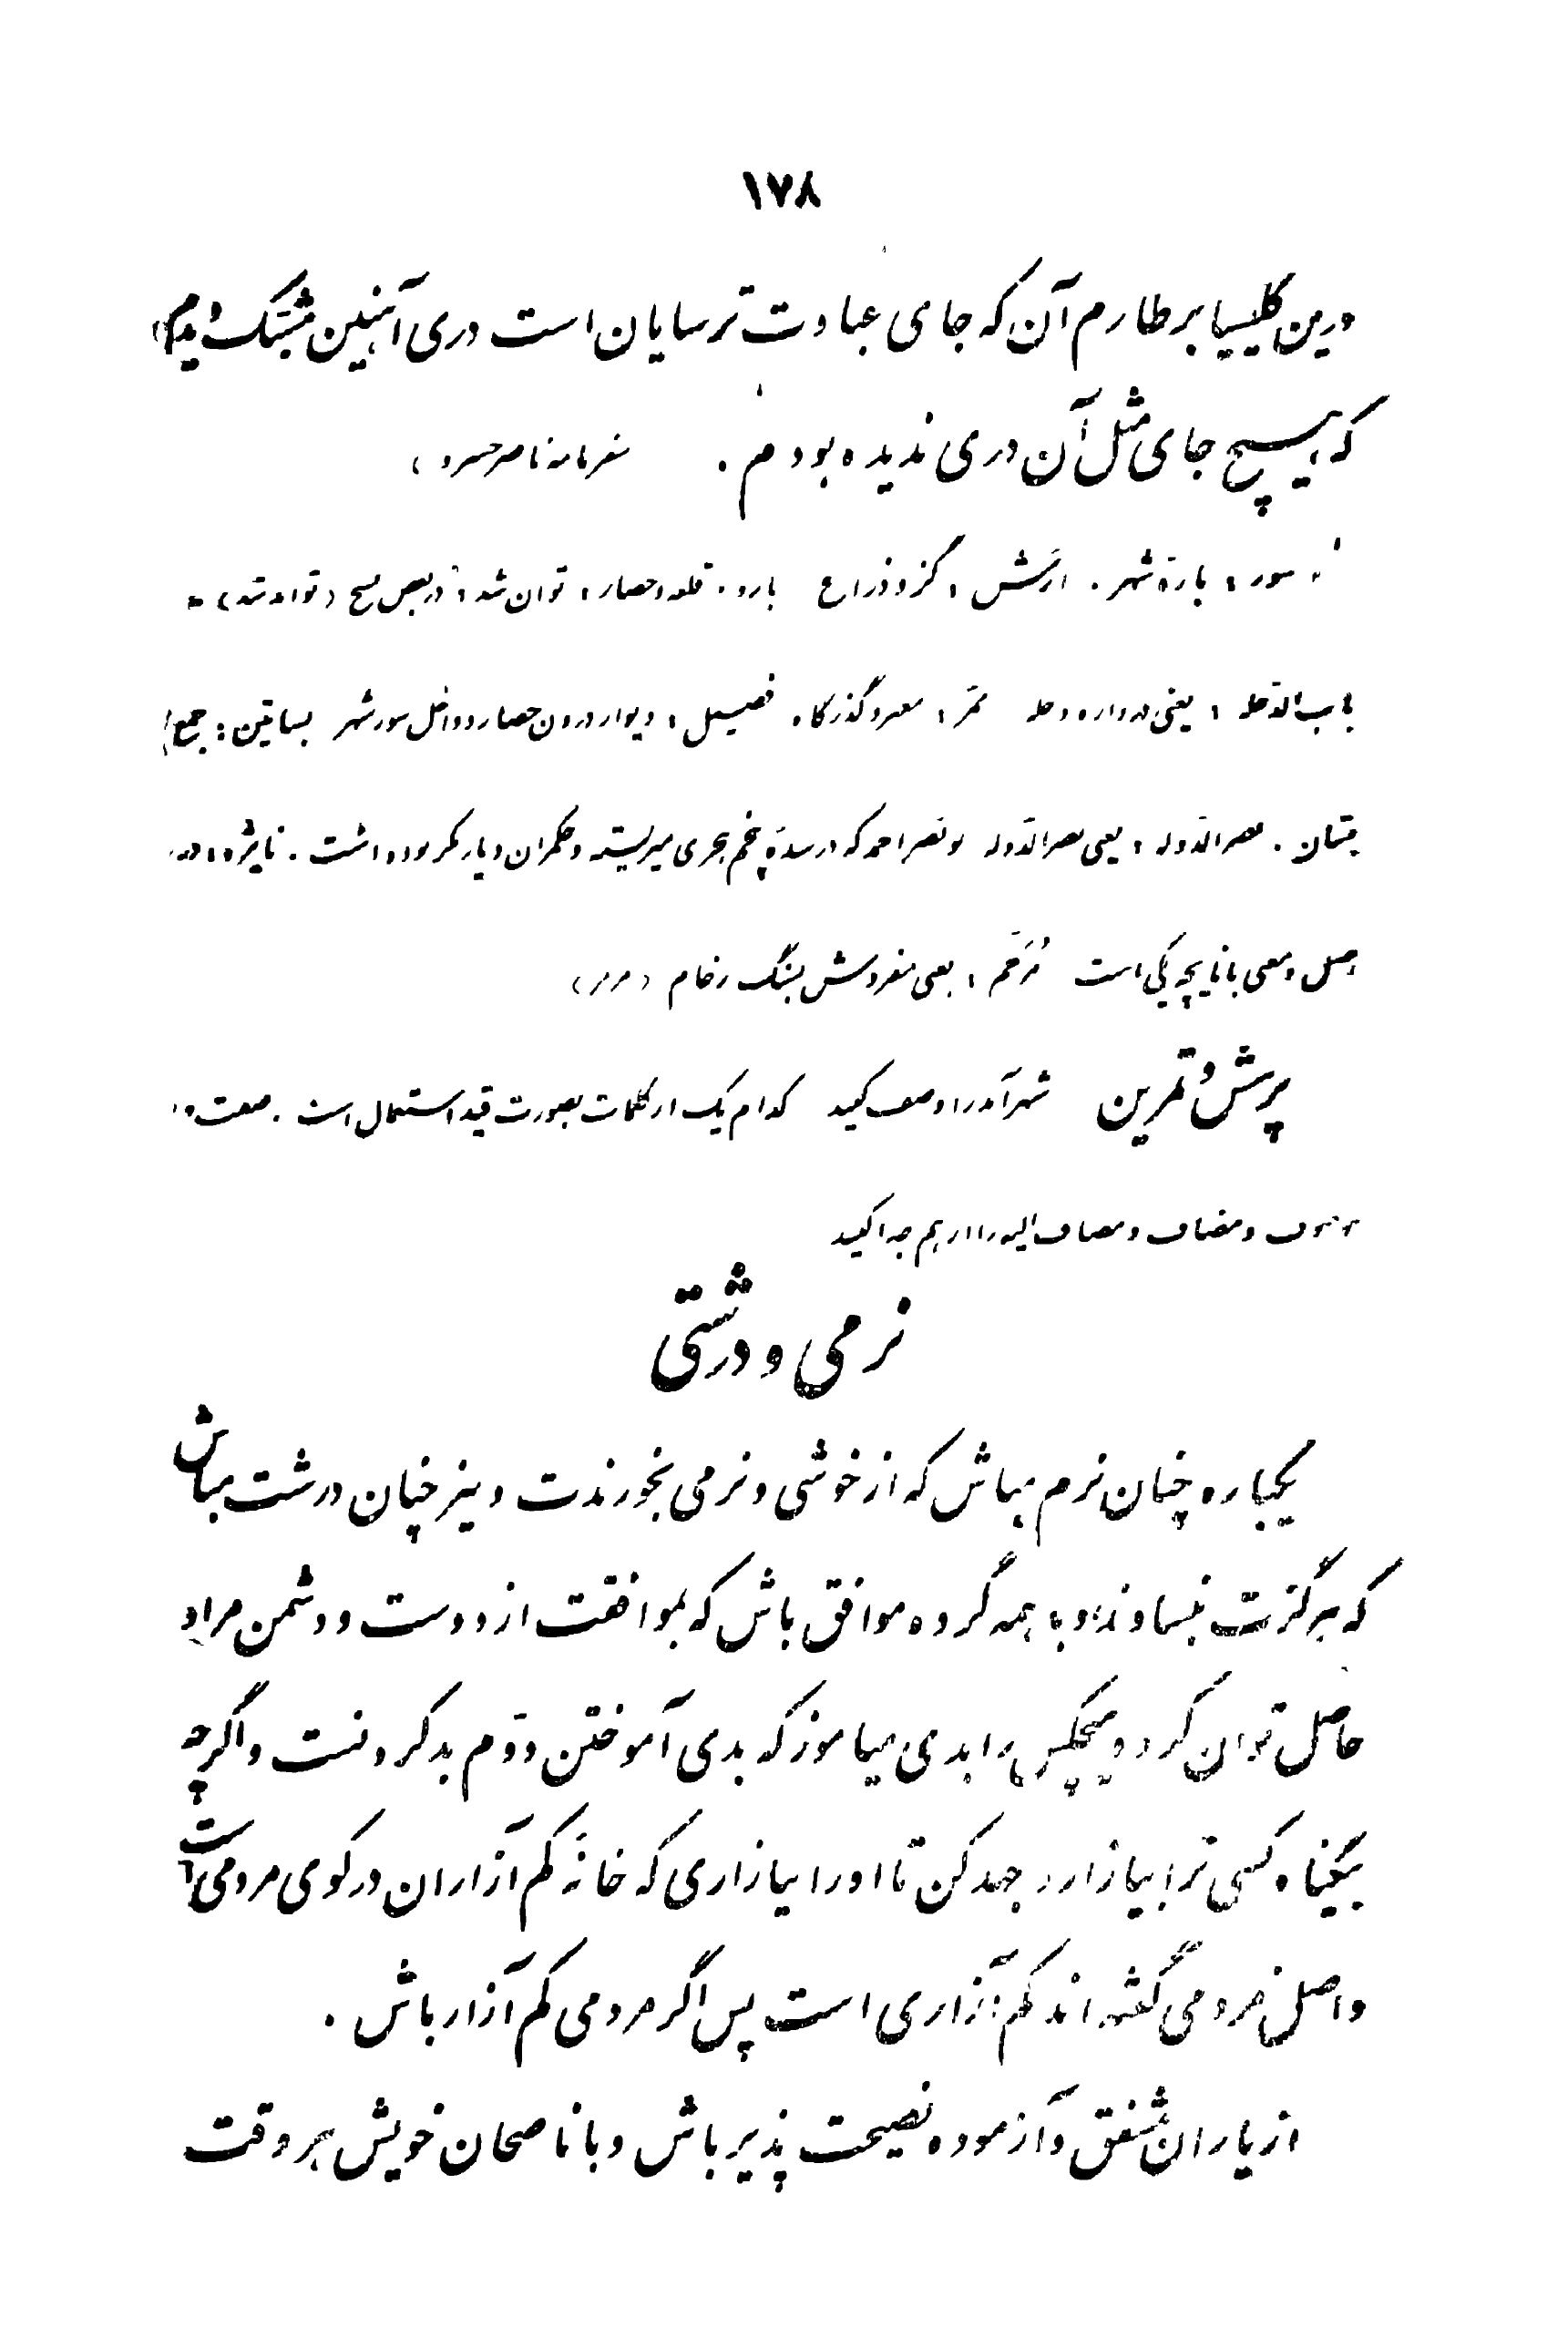 ۱۷۸
درین کلیسیا بر طارم آن که جای عبادت ترسایان است دری آهنین مشبّک دیدم
که هیچ جای مثل آن دری ندیده بودم . سفرنامه ناصرخسرو)
سور : بارهٔ شهر . ارش : گز و ذراع بارو : قلعه و حصار : توان شد : در بعض نسخ (تواند شد)
باب الدّجله : یعنی دروازه دجله ممرّ : معبر و گذرگاه فصیل : دیوار درون حصار و داخل سور شهر بساتین : جمع
بستان . نصرالدّوله : یعنی نصرالدّوله ابو نصر احمد که در سدهٔ پنجم هجری میزیسته و حکمران دیار بکر بوده است . نایژه : در
اصل و معنی با نایچه یکی است مُرَخّم : یعنی مفروش بسنگ رخام (مرمر)
پرسش و تمرین شهر آمد را وصف کنید کدام یک از کلمات بصورت قید استعمال شده است . صفت و
موصوف و مضاف و مضاف الیه را از هم جدا کنید
نرمی و درشتی
یکباره چنان نرم مباش که از خوشی و نرمی بخورندت و نیز چنان درشت مباش
که هرگزت نبساوند و با همه گروه موافق باش که بموافقت از دوست و دشمن مراد
حاصل توان کرد و هیچکس را بدی میاموز که بدی آموختن دوّم بد کردنست و اگرچه
بیگناه کسی ترا بیازارد جهد کن تا او را نیازاری که خانهٔ کم آزاران در کوی مردمی است
و اصل مردمی گفته اند کم آزاری است پس اگر مردمی کم آزار باش .
از یاران مشفق و آزموده نصیحت پذیر باش و با ناصحان خویش هر وقت